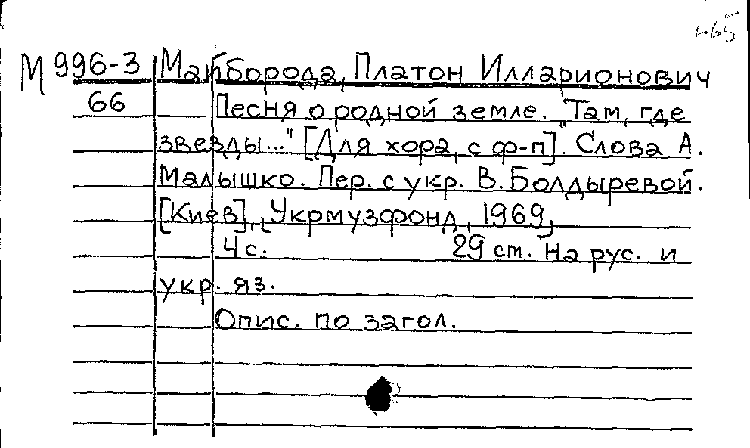 М 996-3 Майборода, Платон Илларионович
66 Песня о родной земле. "Там, где
звезды..." [Для хора, с ф-п]. Слова А.
Малышко. Пер. с укр. В. Болдыревой.
[Киев], [Укрмузфонд, 1969]
4 с. 29 cm. На рус. и
укр. яз.
Опис. по загол.